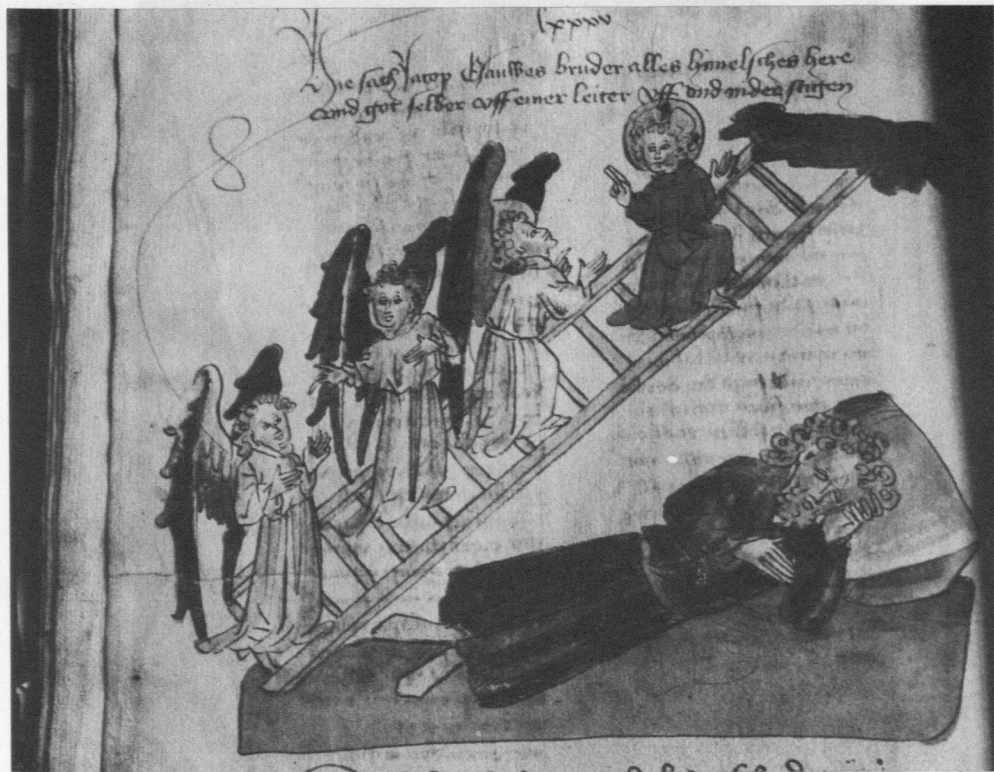 lxxxv
Hie sach Jacop Esauwes bruder alles himelsches here
vnd got selber vff einer leiter vff vnd nider stigen